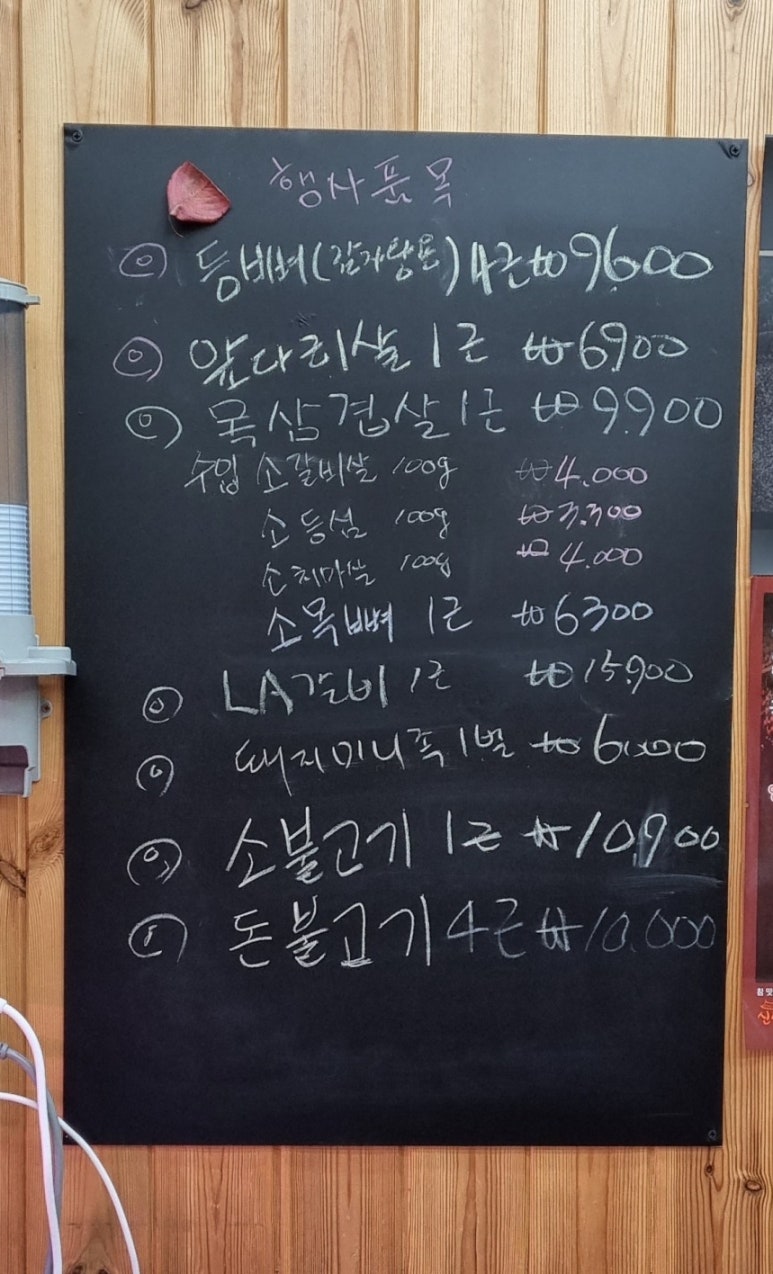 행사품목
등뼈(감자탕용) 4근 ₩9600
앞다리살 1근 ₩6900
목삼겹살 1근 ₩9.900
수입 소갈비살 100g ₩4.000
소등심 100g ₩3.300
소치마살 100g ₩4.000
소목뼈 1근 ₩6300
LA갈비 1근 ₩15.900
돼지미니족 1벌 ₩6.000
소불고기 1근 ₩10,900
돈불고기 4근 ₩10.000